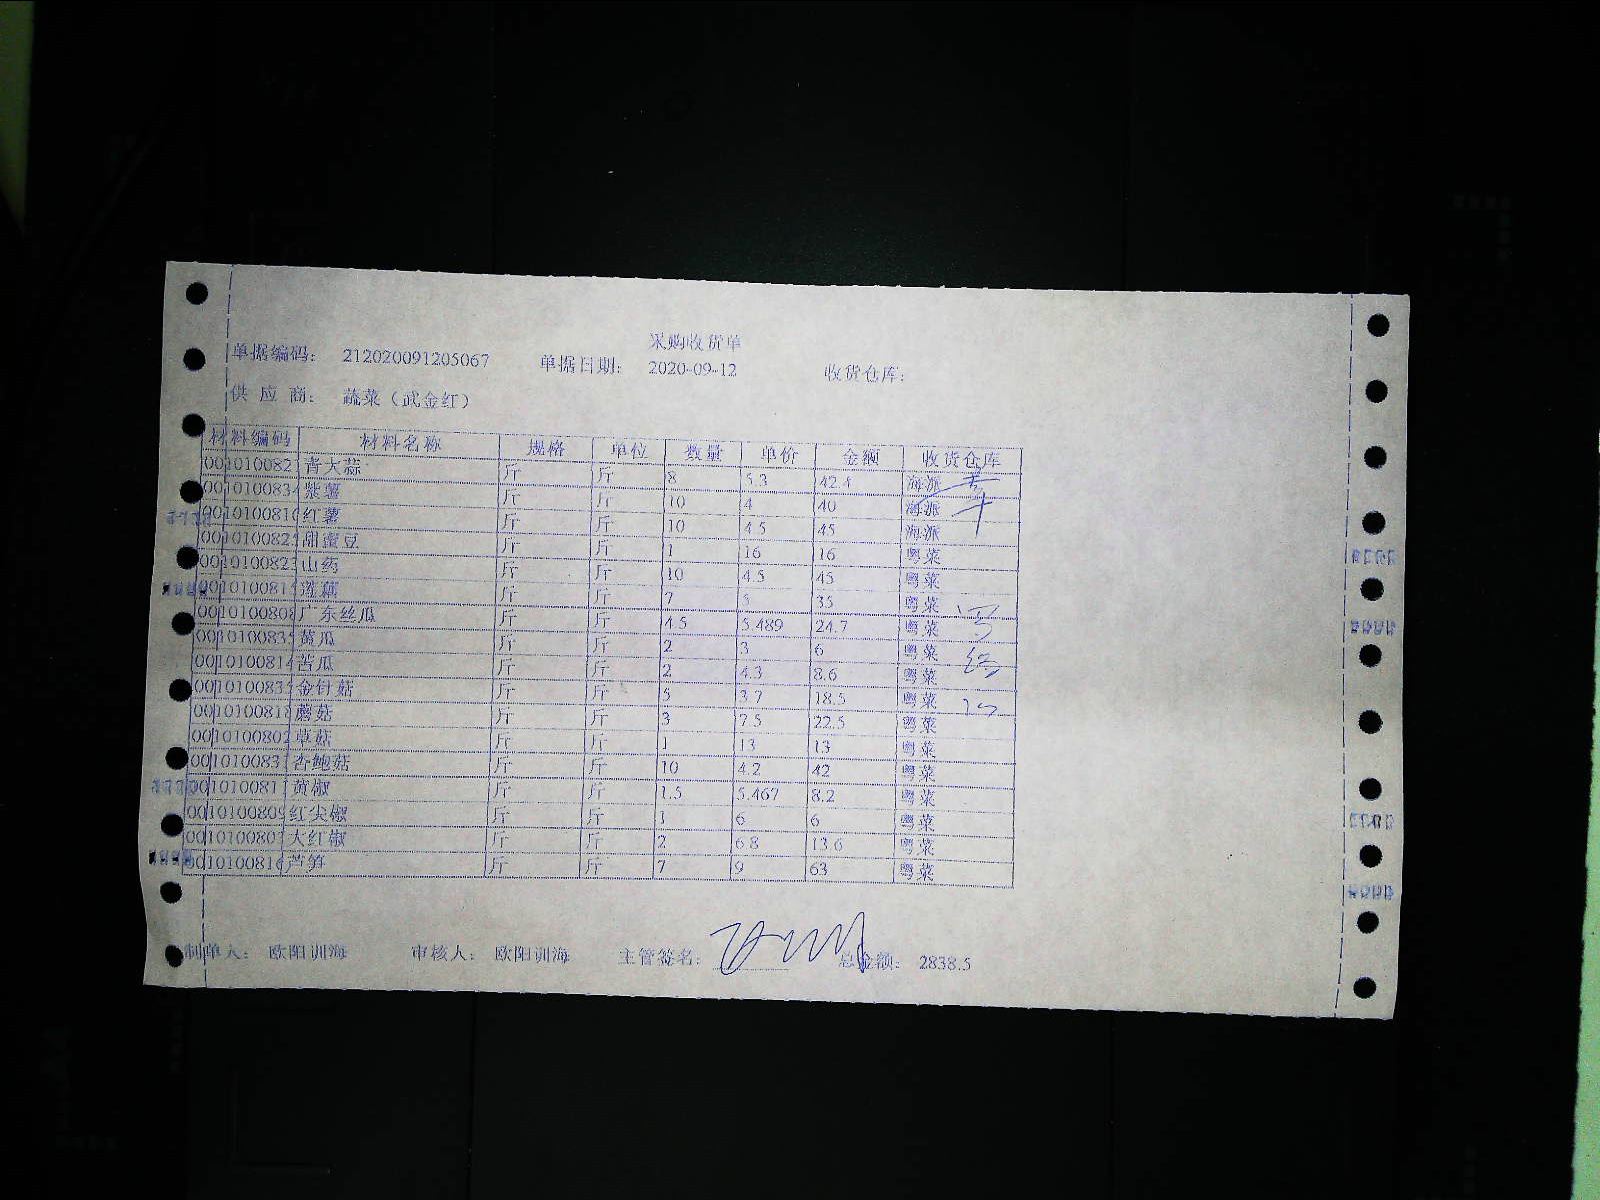 采购收货单
单据编码： 212020091205067 单据日期： 2020-09-12 收货仓库：
供 应 商： 蔬菜（武金红）
材料编码 材料名称 规格 单位 数量 单价 金额 收货仓库
001010082 青大蒜 斤 斤 8 5.3 42.4 海派
0010100834 紫薯 斤 斤 10 4 40 海派
001010081 红薯 斤 斤 10 4.5 45 海派
001010082 甜蜜豆 斤 斤 1 16 16 粤菜
001010082 山药 斤 斤 10 4.5 45 粤菜
001010081 莲藕 斤 斤 7 5 35 粤菜
001010080 广东丝瓜 斤 斤 4.5 5.489 24.7 粤菜
001010083 黄瓜 斤 斤 2 3 6 粤菜
0010100814 苦瓜 斤 斤 2 4.3 8.6 粤菜
001010083 金针菇 斤 斤 5 3.7 18.5 粤菜
001010081 蘑菇 斤 斤 3 7.5 22.5 粤菜
0010100802 草菇 斤 斤 1 13 13 粤菜
001010083 杏鲍菇 斤 斤 10 4.2 42 粤菜
001010081 黄椒 斤 斤 1.5 5.467 8.2 粤菜
001010080 红尖椒 斤 斤 1 6 6 粤菜
001010080 大红椒 斤 斤 2 6.8 13.6 粤菜
001010081 芦笋 斤 斤 7 9 63 粤菜
制单人： 欧阳训海 审核人： 欧阳训海 主管签名： 总金额： 2838.5